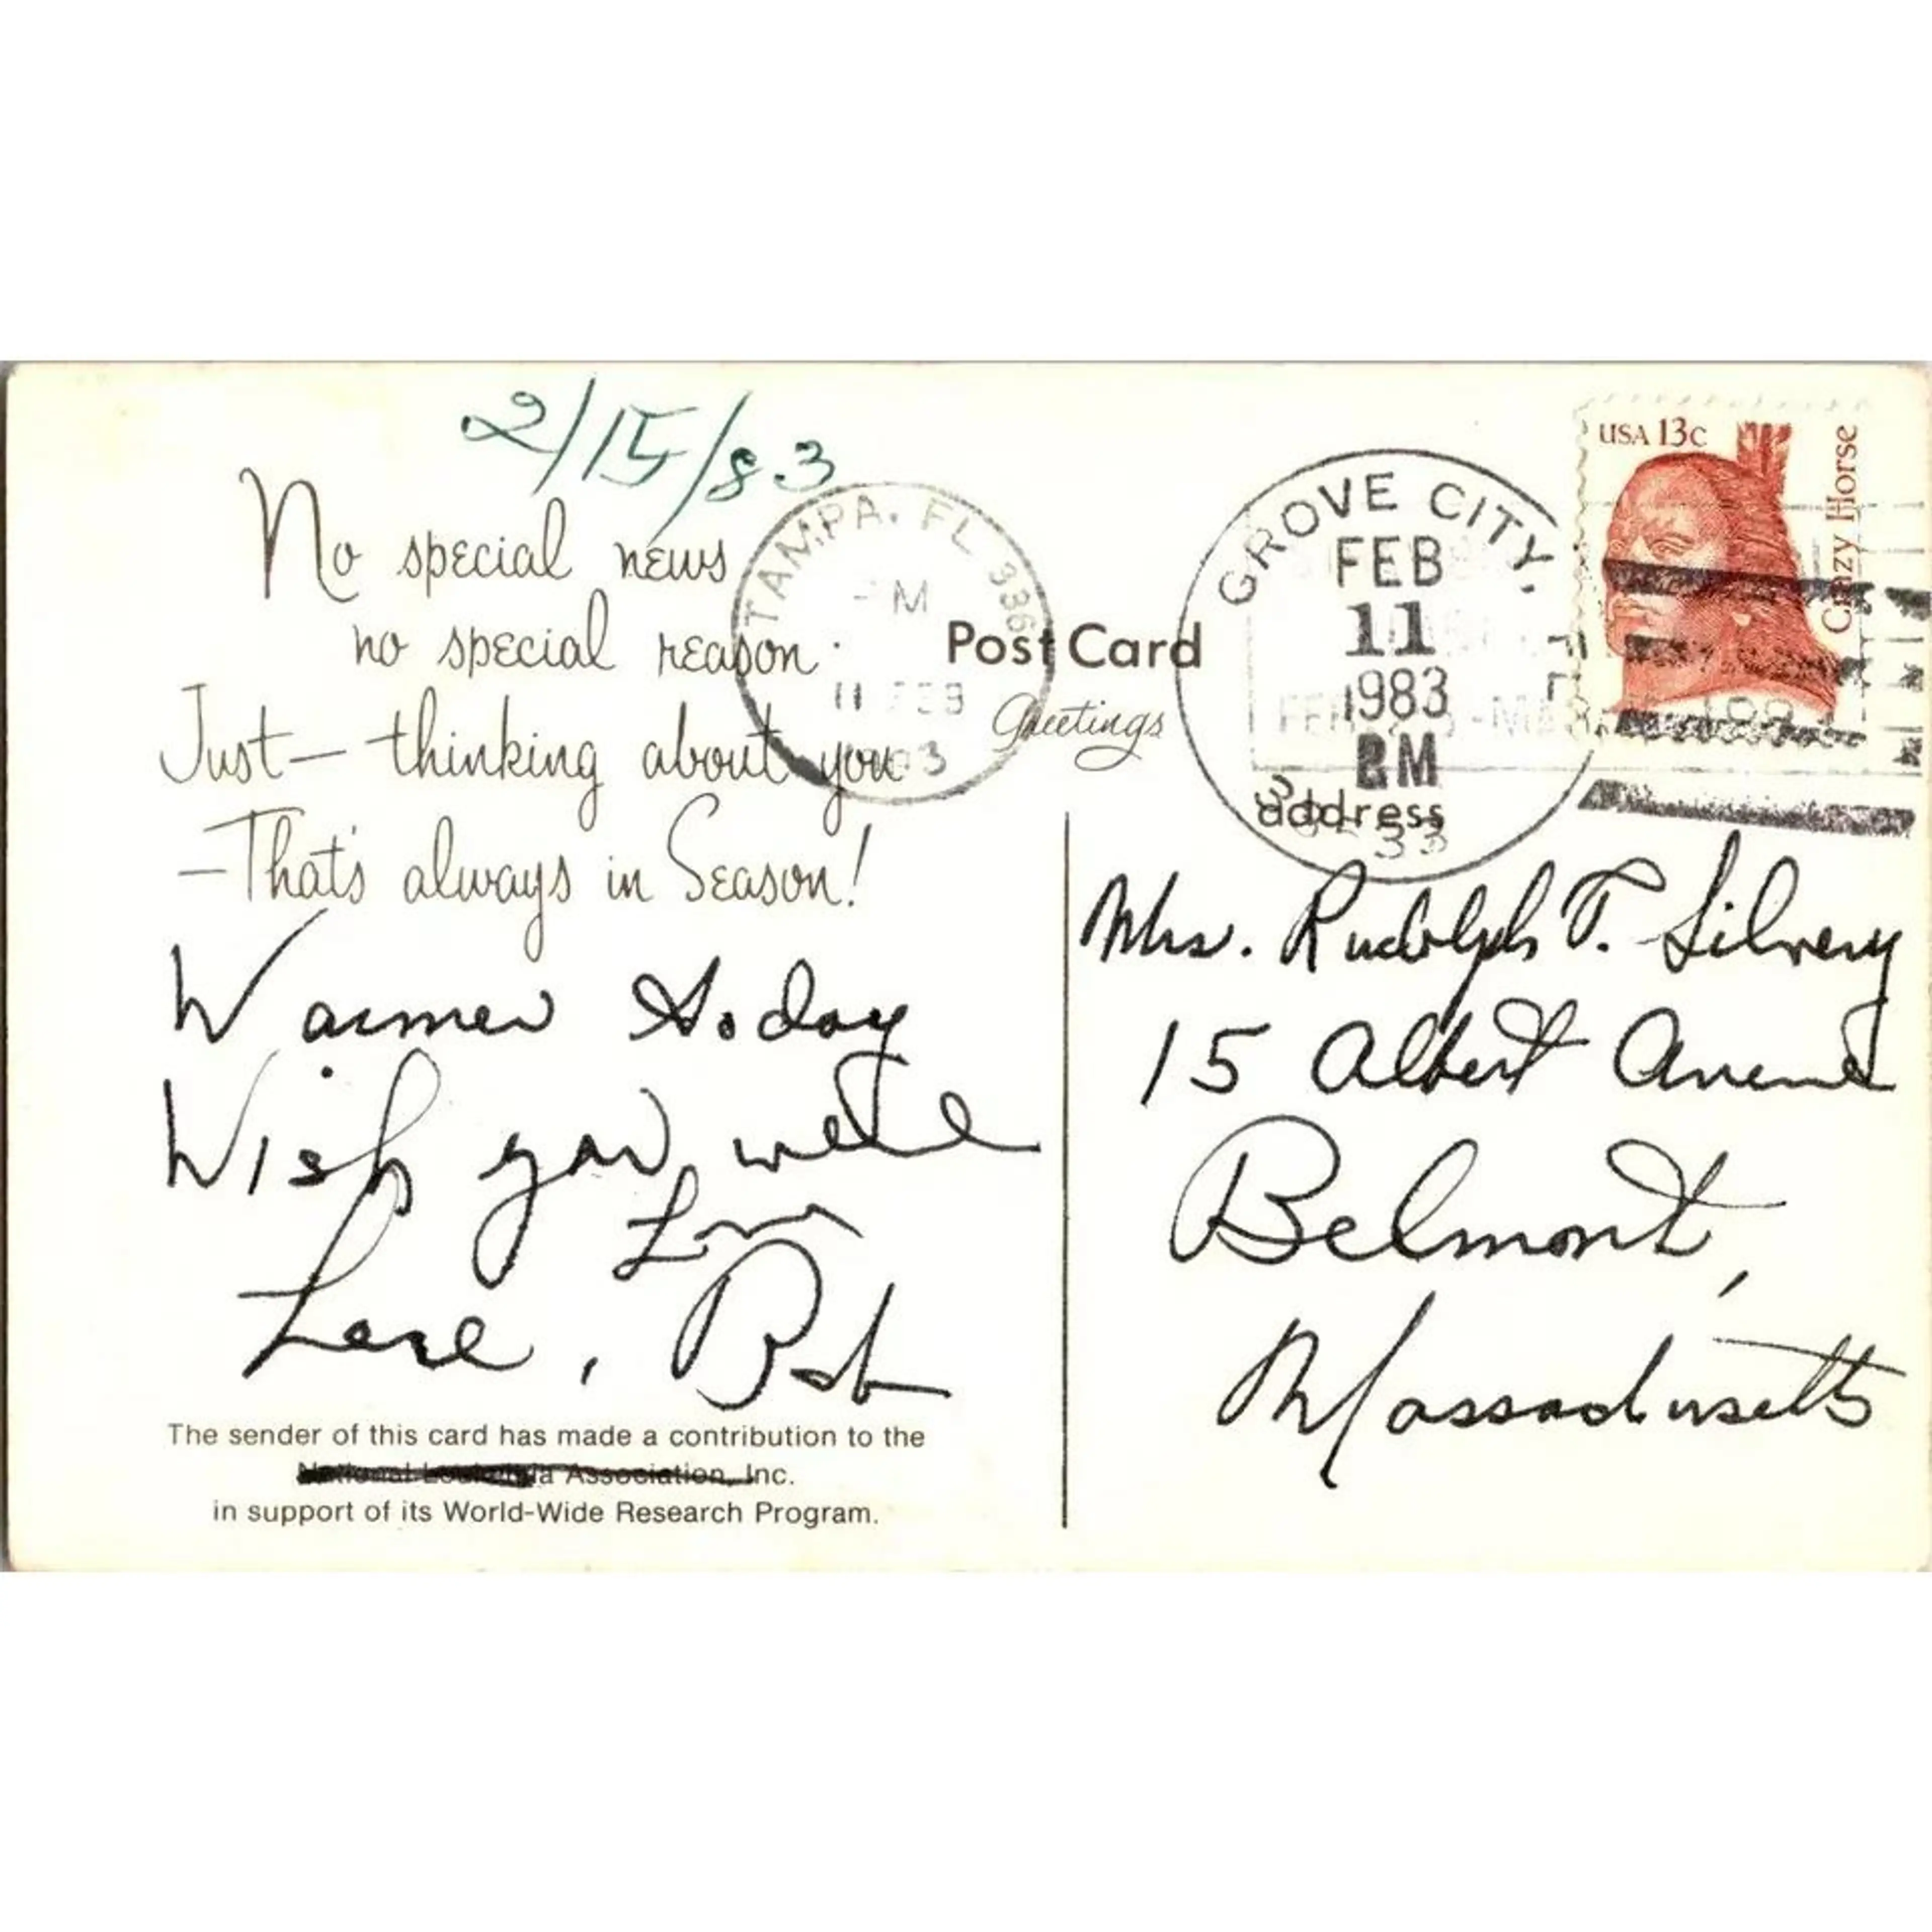 2/15/83
No special news
no special reason.
Just— thinking about you
—That's always in Season!
Warmer today
Wish you were
Love, Bob
The sender of this card has made a contribution to the
National Leukemia Association, Inc.
in support of its World-Wide Research Program.
TAMPA, FL 336
PM
11 FEB
Post Card
Greetings
GROVE CITY,
FEB
11
1983
PM
FL
address
USA 13c
Crazy Horse
Mrs. Rudolph T.
15 Albert Avenue
Belmont,
Massachusetts